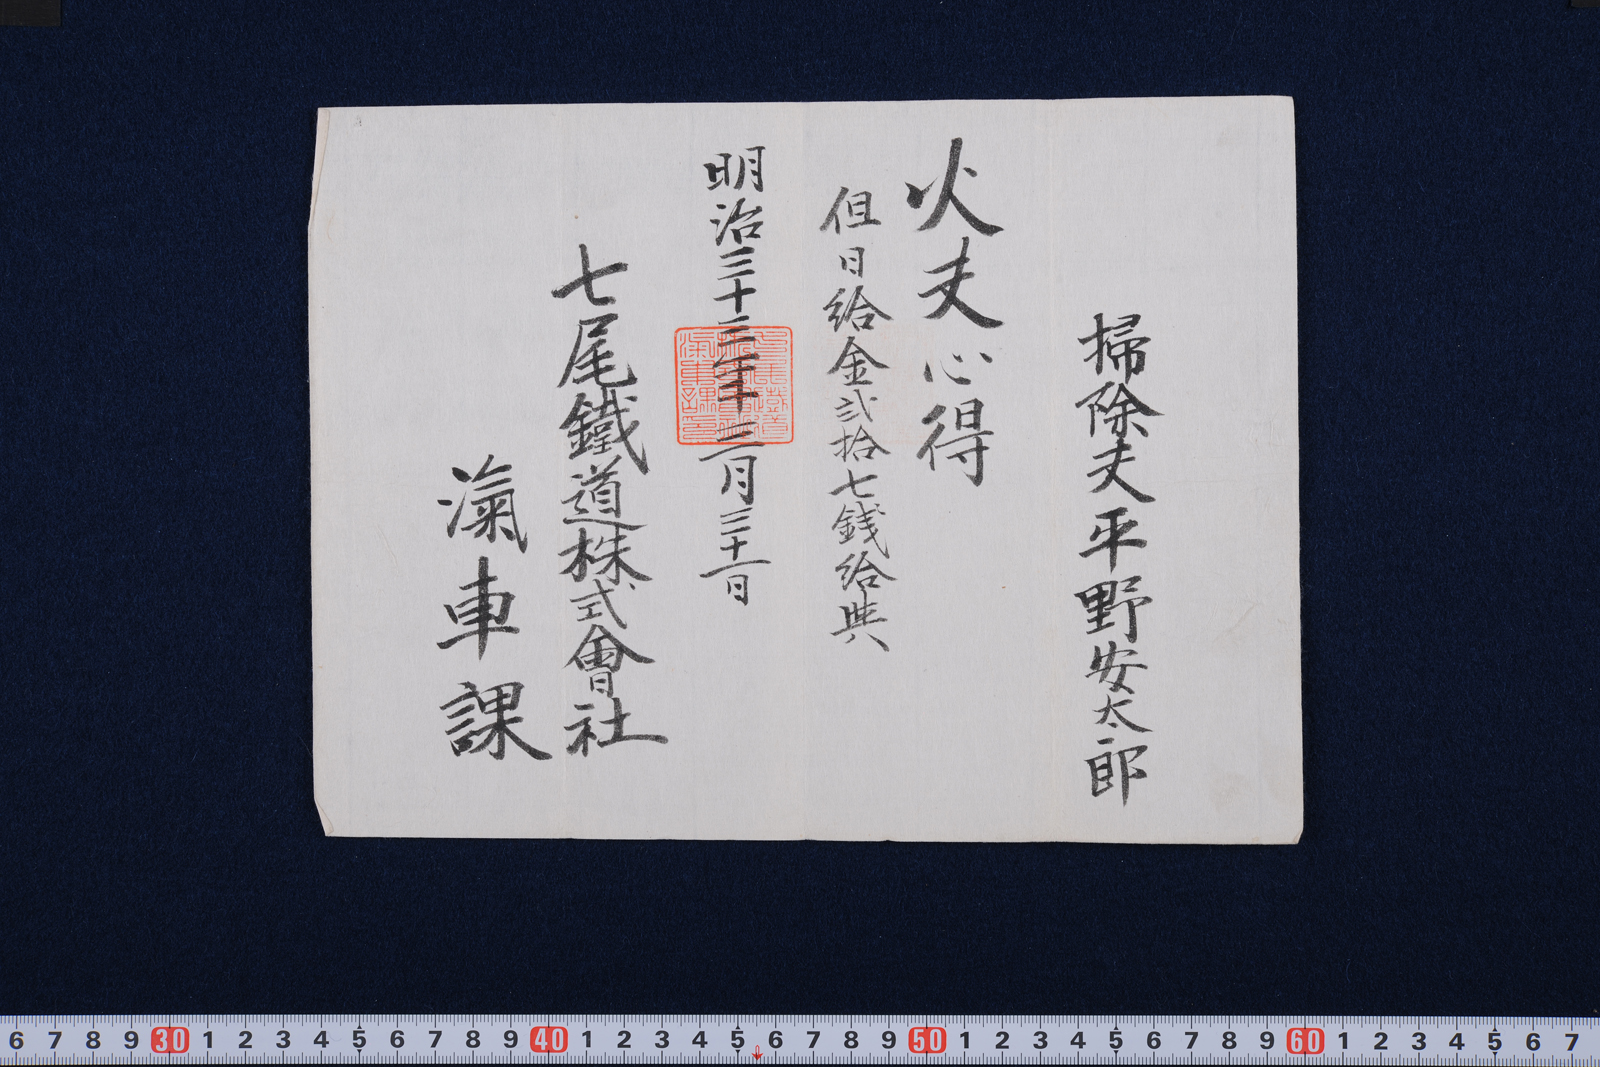 掃除夫平野安太郎
火夫心得
但日給金弐拾七銭給與
明治三十三年三月三十一日
七尾鐵道株式會社
滊車課
七尾鐵道
株式會社
滊車課印
6 7 8 9 30 1 2 3 4 5 6 7 8 9 40 1 2 3 4 5 6 7 8 9 50 1 2 3 4 5 6 7 8 9 60 1 2 3 4 5 6 7